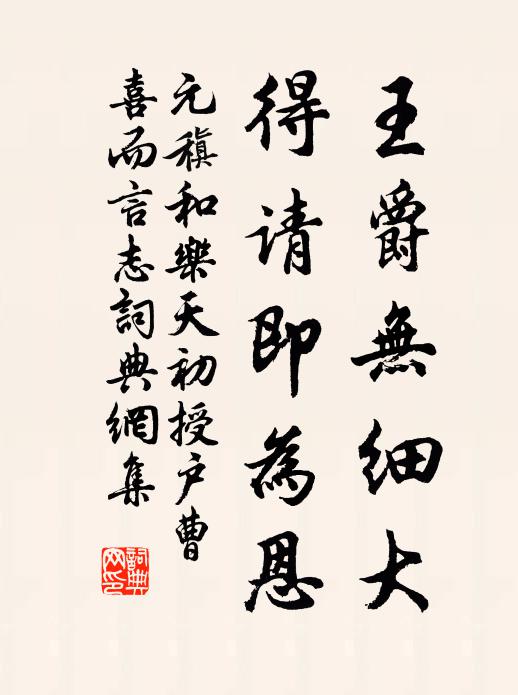 王爵無細大
得请即為恩
元稹和樂天初授戶曹
喜而言志詞典網集
詞典網印